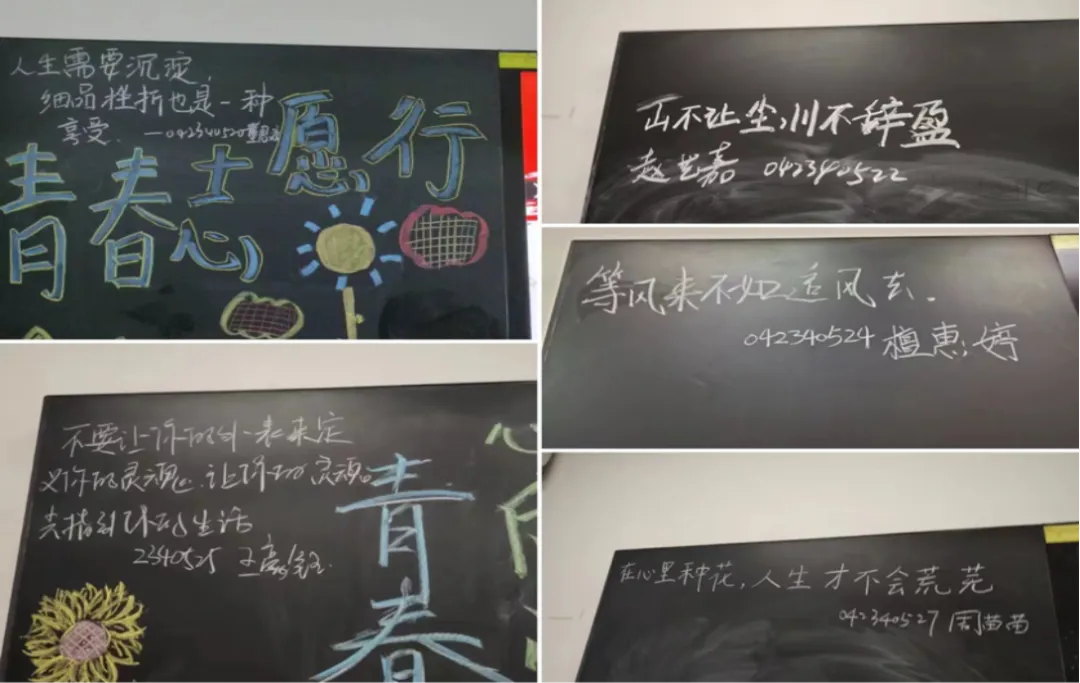 人生需要沉淀，
细品挫折也是一种
享受. —042340520
愿行
青春志
山不让尘,川不辞盈
赵艺嘉 042340522
等风来不如追风去.
042340524 檀惠婷
不要让你的外表来定
义你的灵魂.让你的灵魂
去指引你的生活
2340525
青
春
在心里种花,人生才不会荒芜
042340527 周苗苗